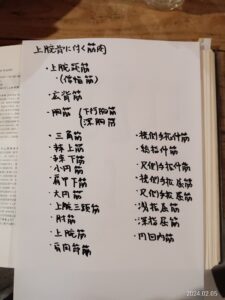 上腕骨に付く筋肉
・上腕頭筋
・(信指筋)
・広背筋
・胸筋
大円筋
・三角筋
・棘上筋
・棘下筋
・小円筋
・肩甲下筋
・大円筋
・上腕三頭筋
・肘筋
・上腕筋
・橈側手根伸筋
・総指伸筋
・尺側手根伸筋
・橈側手根屈筋
・尺側手根屈筋
・浅指屈筋
・深指屈筋
・円回内筋
2024.02.05